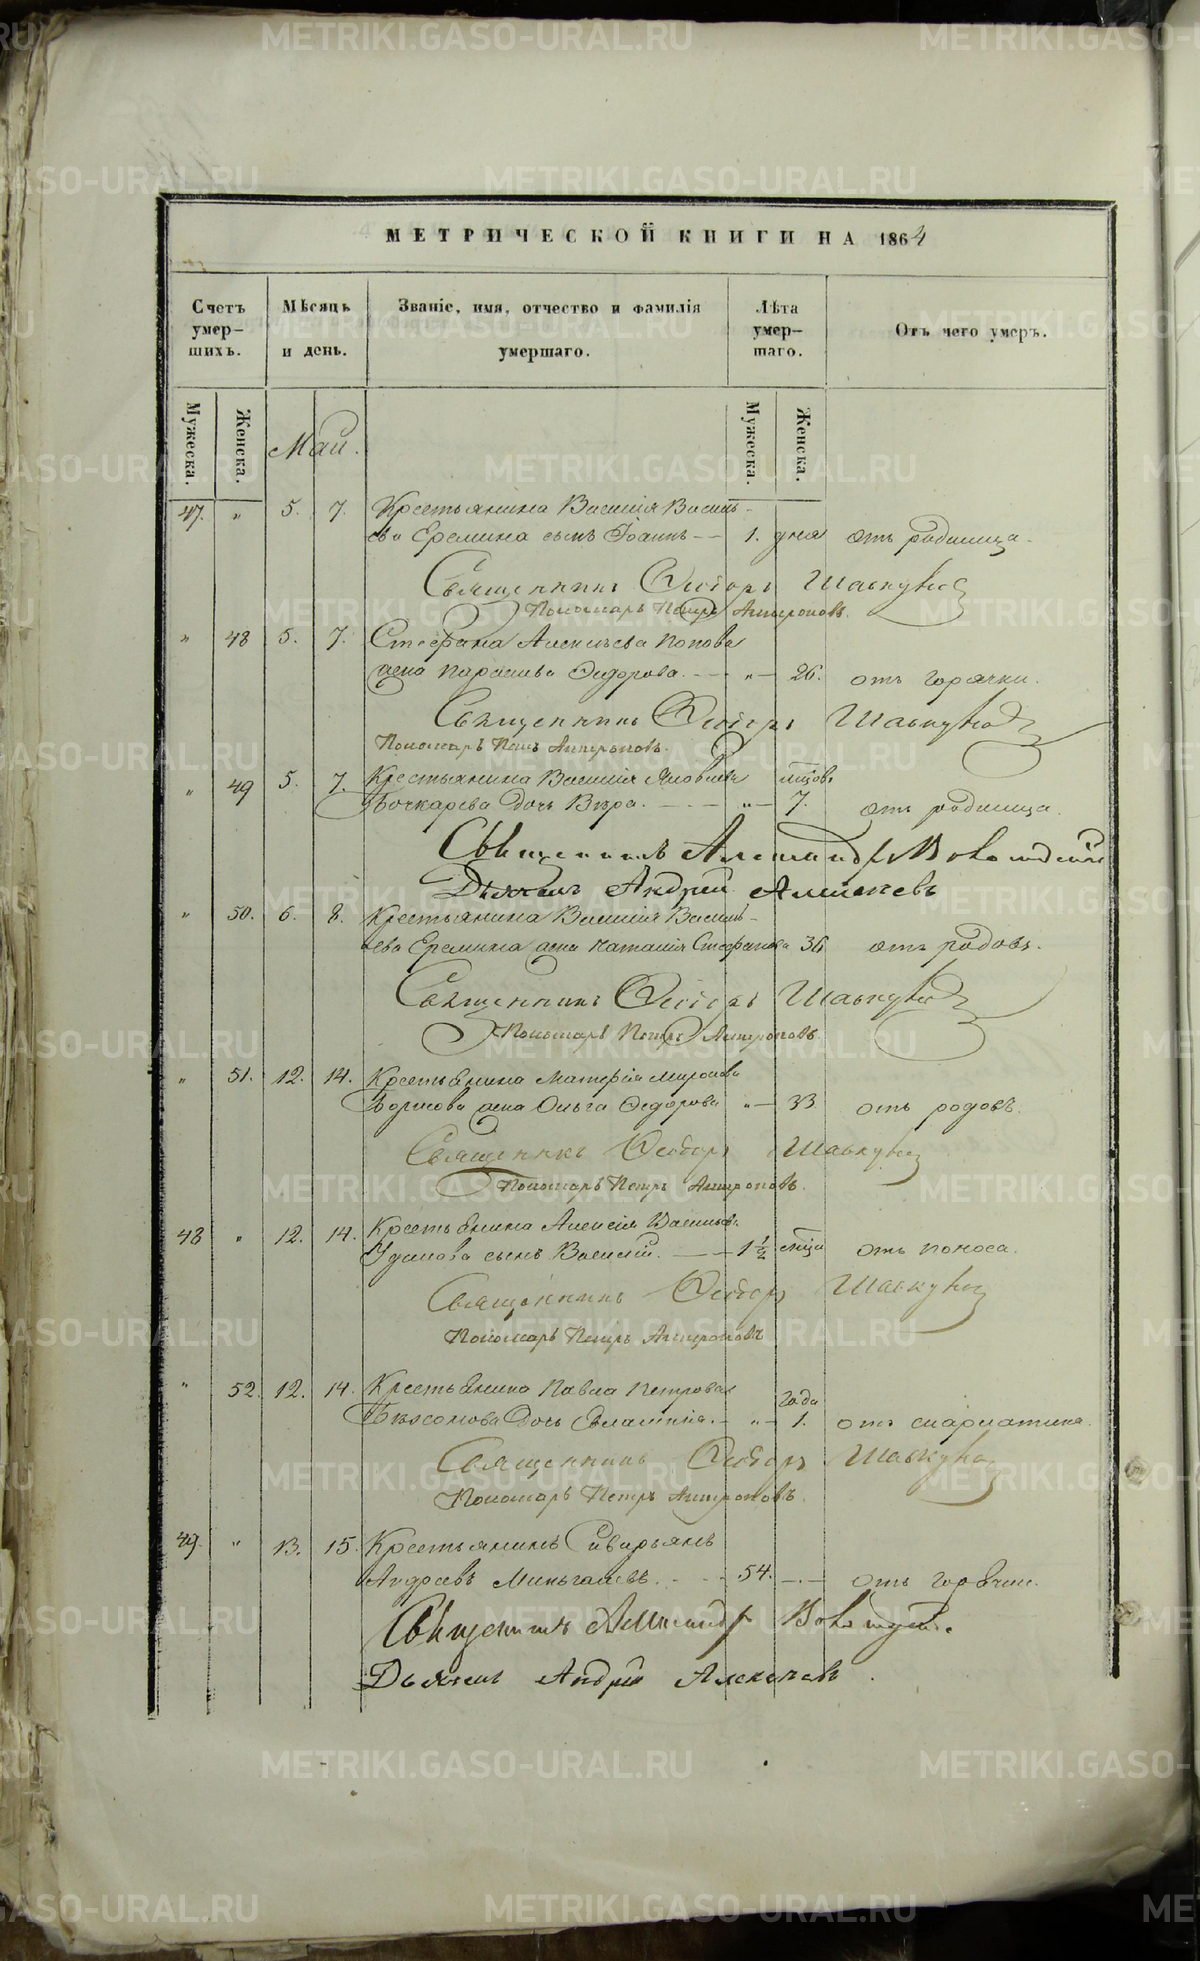 МЕТРИЧЕСКОЙ КНИГИ НА 1864
Счетъ умер-шихъ.
Мѣсяцъ и день.
Званіе, имя, отчество и фамилія умершаго.
Лѣта умер-шаго.
Отъ чего умеръ.
Мужеска. Женска. Май. Мужеска. Женска.
47. " 5. 7. Крестьянина Василія Василь-
ева Еремина сынъ Іоаннъ — 1. дня отъ родимца.
Священникъ Ѳеодоръ
Пономарь Петръ Антроповъ.
" 48 5. 7. Стефана Алексѣева Попова
жена Параскева Ѳедорова. — " — 26. отъ горячки.
Священникъ Ѳеодоръ
Пономарь Петръ Антроповъ.
" 49 5. 7. Крестьянина Василія Яковлева мѣсяцовъ
Бочкарева дочь Вѣра. — " — 7. отъ родимца.
Священникъ Александръ
Дьяконъ Андрей Алексѣевъ
" 50. 6. 8. Крестьянина Василія Василь-
ева Еремина жена Наталія Стефанова 36 отъ родовъ.
Священникъ Ѳеодоръ
Пономарь Петръ Антроповъ.
" 51. 12. 14. Крестьянина Матѳія Миронова
Борисова жена Ольга Ѳедорова " — 33 отъ родовъ.
Священникъ Ѳеодоръ
Пономарь Петръ Антроповъ.
48 " 12. 14. Крестьянина Алексія Васильева
сынъ Василій. — 1½ мѣсяца отъ поноса.
Священникъ Ѳеодоръ
Пономарь Петръ Антроповъ
" 52. 12. 14. Крестьянина Павла Петрова года
дочь — " — 1. отъ скарлатина.
Священникъ Ѳеодоръ
Пономарь Петръ Антроповъ.
49. " 13. 15. Крестьянинъ
Андреевъ — 54. — отъ горячки.
Священникъ Александръ
Дьяконъ Андрей Алексѣевъ.
METRIKI.GASO-URAL.RU